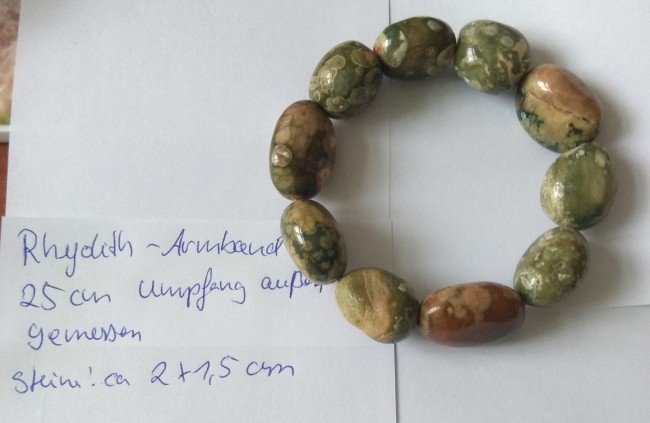 Rhyolith - Armband
25 cm Umpfang außen
gemessen
Steine: ca 2 + 1,5 cm